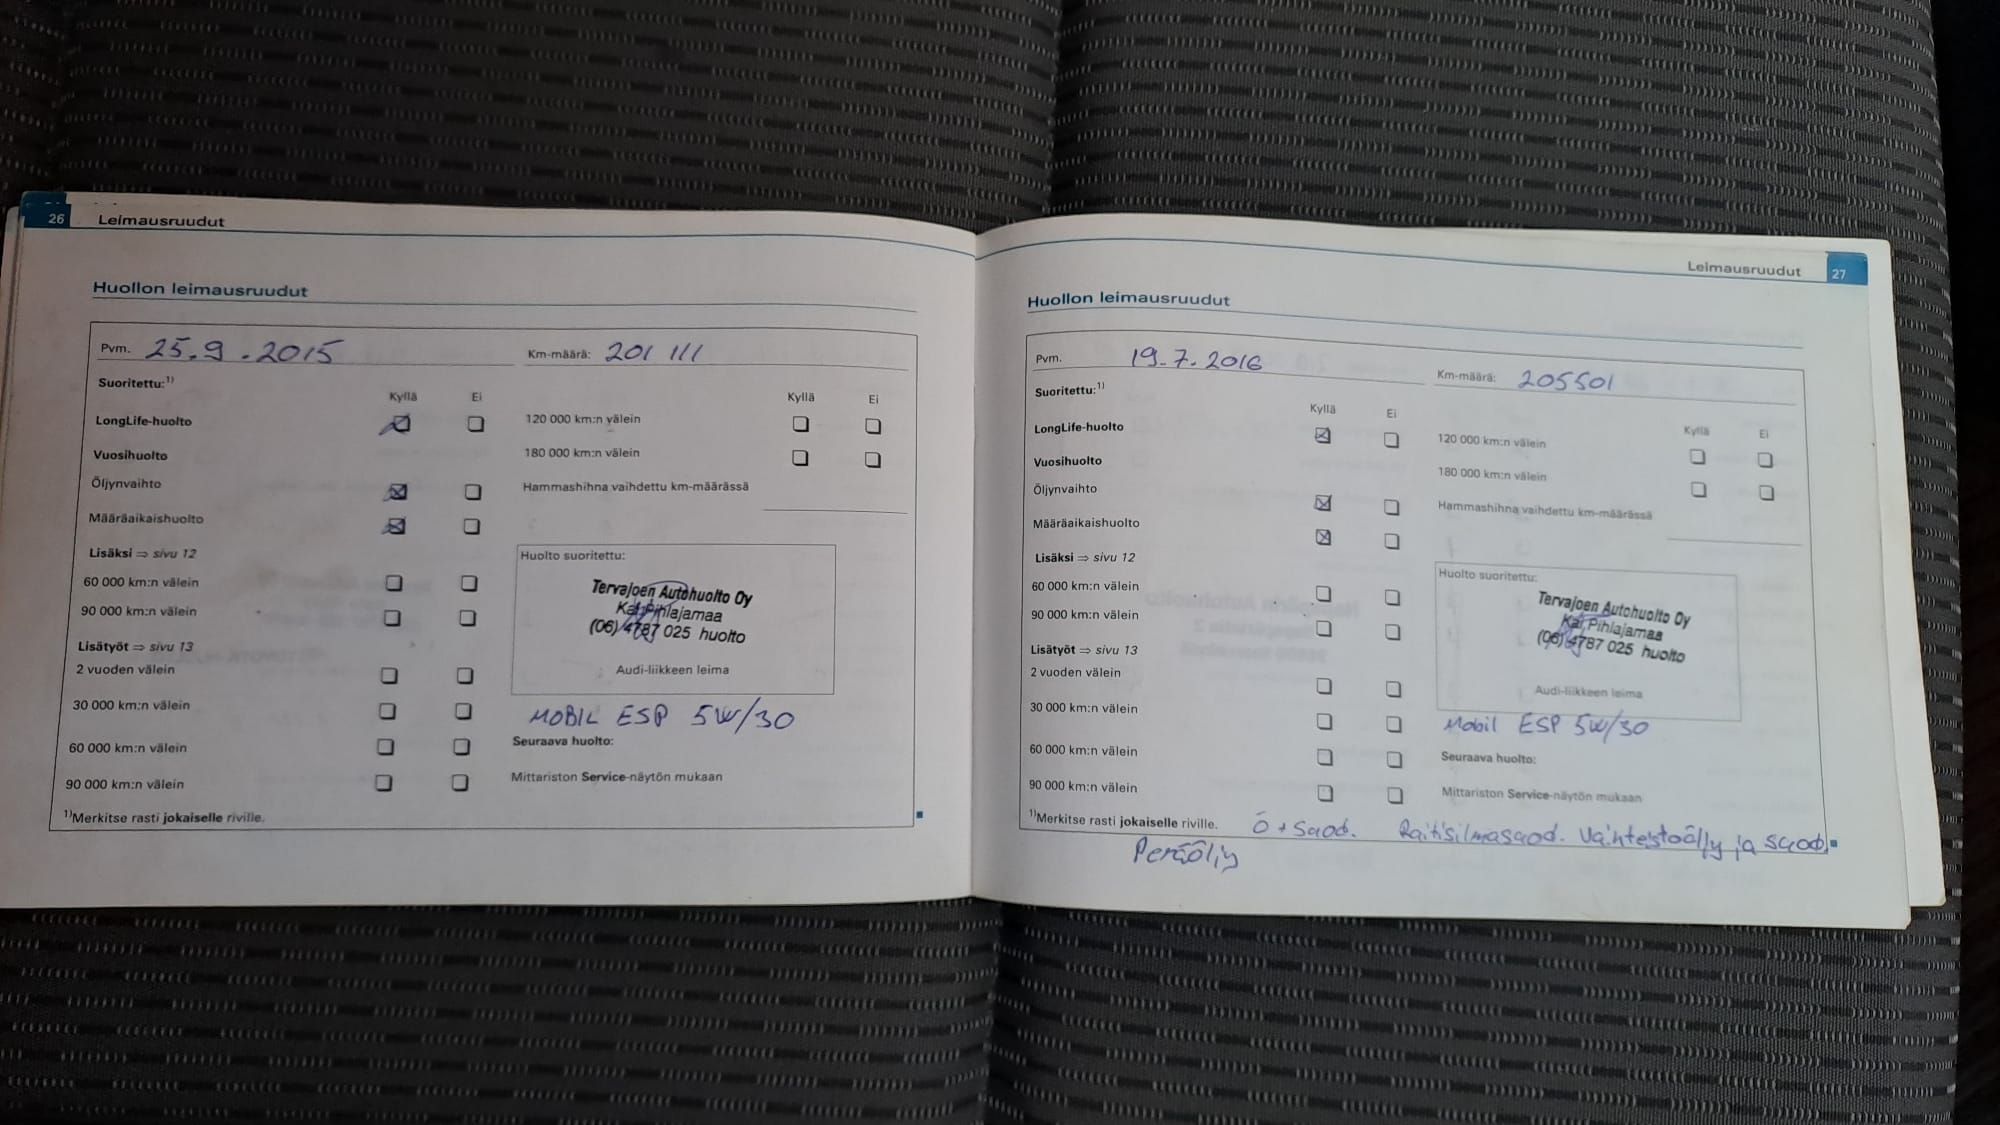 26 Leimausruudut
Huollon leimausruudut
Pvm. 25.9.2015 Km-määrä: 201 111
Suoritettu:1)
Kyllä Ei Kyllä Ei
LongLife-huolto 120 000 km:n välein
Vuosihuolto 180 000 km:n välein
Öljynvaihto Hammashihna vaihdettu km-määrässä
Määräaikaishuolto
Lisäksi ⇒ sivu 12
60 000 km:n välein
90 000 km:n välein
Lisätyöt ⇒ sivu 13
2 vuoden välein
30 000 km:n välein
60 000 km:n välein
90 000 km:n välein
1)Merkitse rasti jokaiselle riville.
Huolto suoritettu:
Tervajoen Autohuolto Oy
Kai Pihlajamaa
(06) 4787 025 huolto
Audi-liikkeen leima
MOBIL ESP 5W/30
Seuraava huolto:
Mittariston Service-näytön mukaan
Leimausruudut 27
Huollon leimausruudut
Pvm. 19.7.2016 Km-määrä: 205501
Suoritettu:1)
Kyllä Ei Kyllä Ei
LongLife-huolto 120 000 km:n välein
Vuosihuolto 180 000 km:n välein
Öljynvaihto Hammashihna vaihdettu km-määrässä
Määräaikaishuolto
Lisäksi ⇒ sivu 12
60 000 km:n välein
90 000 km:n välein
Lisätyöt ⇒ sivu 13
2 vuoden välein
30 000 km:n välein
60 000 km:n välein
90 000 km:n välein
Huolto suoritettu:
Tervajoen Autohuolto Oy
Kai Pihlajamaa
(06) 4787 025 huolto
Audi-liikkeen leima
Mobil ESP 5W/30
Seuraava huolto:
Mittariston Service-näytön mukaan
1)Merkitse rasti jokaiselle riville. Ö + suod. Raitisilmasuod. Vaihteistoölly ja suod.
Peräöljy